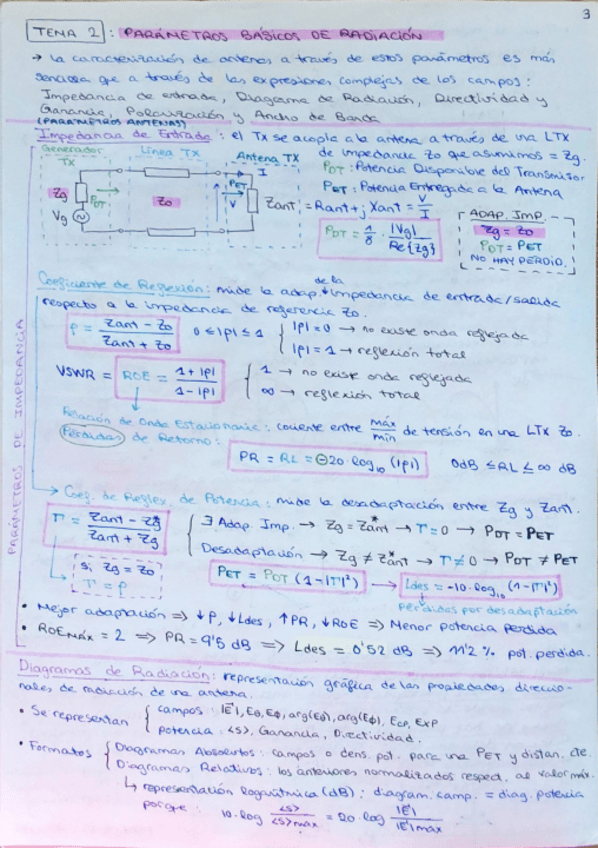 3
TEMA 2 : PARÁMETROS BÁSICOS DE RADIACIÓN
→ La caracterización de antenas a través de estos parámetros es más
sencilla que a través de las expresiones complejas de los campos:
Impedancia de entrada, Diagrama de Radiación, Directividad y
Ganancia, Polarización y Ancho de Banda
(PARÁMETROS ANTENAS)
Impedancia de Entrada: el Tx se acopla a la antena a través de una LTX
de impedancia Zo que asumimos = Zg.
Generador TX
Línea TX
Antena TX
PDT: Potencia Disponible del Transmisor
PET: Potencia Entregada a la Antena
Zg
PDT
Vg
Zo
I
PET
V
Zant = Rant + j Xant = V/I
PDT = 1/8 · |Vg|/Re{Zg}
ADAP. IMP.
Zg = Zo
PDT = PET
NO HAY PERDID.
PARÁMETROS DE IMPEDANCIA
Coeficiente de Reflexión: mide la adap. de la impedancia de entrada/salida
respecto a la impedancia de referencia Zo.
ρ = (Zant - Zo)/(Zant + Zo) 0 ≤ |ρ| ≤ 1 { |ρ| = 0 → no existe onda reflejada
|ρ| = 1 → reflexión total
VSWR = ROE = (1 + |ρ|)/(1 - |ρ|) { 1 → no existe onda reflejada
∞ → reflexión total
Relación de Onda Estacionaria: cociente entre máx/mín de tensión en una LTX Zo.
Pérdidas de Retorno:
PR = RL = -20·log10 (|ρ|) 0dB ≤ RL ≤ ∞ dB
→ Coef. de Reflex. de Potencia: mide la desadaptación entre Zg y Zant.
Γ = (Zant - Zg*)/(Zant + Zg) { ∃ Adap. Imp. → Zg = Zant* → Γ = 0 → PDT = PET
Desadaptación → Zg ≠ Zant* → Γ ≠ 0 → PDT ≠ PET
si Zg = Zo
Γ = ρ
PET = PDT (1-|Γ|²) → Ldes = -10·log10 (1-|Γ|²)
Pérdidas por desadaptación
• Mejor adaptación ⇒ ↓ρ, ↓Ldes, ↑PR, ↓ROE ⇒ Menor potencia perdida
• ROEMÁX = 2 ⇒ PR = 9'5 dB ⇒ Ldes = 0'52 dB ⇒ 11'2 % pot. perdida.
Diagramas de Radiación: representación gráfica de las propiedades direccio-
nales de radiación de una antena.
• Se representan { campos: |E|, Eθ, Eϕ, arg(Eθ), arg(Eϕ), ECP, EXP
potencia: <S>, Ganancia, Directividad.
• Formatos { Diagramas Absolutos: campos o dens. pot. para una PET y distan. cte.
Diagramas Relativos: los anteriores normalizados respect. al valor máx.
↳ representación logarítmica (dB): diagram. camp. = diag. potencia
porque: 10·log <S>/<S>máx = 20·log |E|/|E|máx